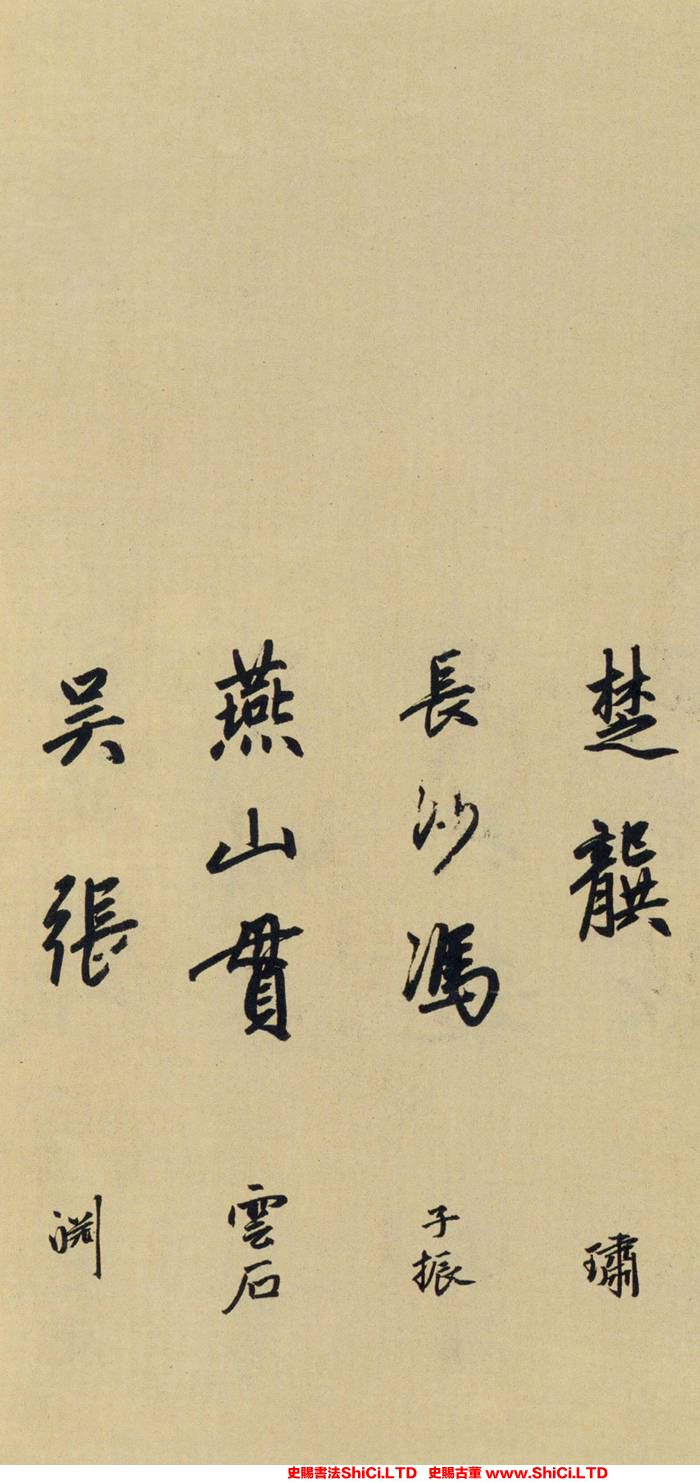 楚龔 璛
長沙馮 子振
燕山貫 雲石
吴張 淵
史賜書法ShiCi.LTD 史賜古董 www.ShiCi.LTD